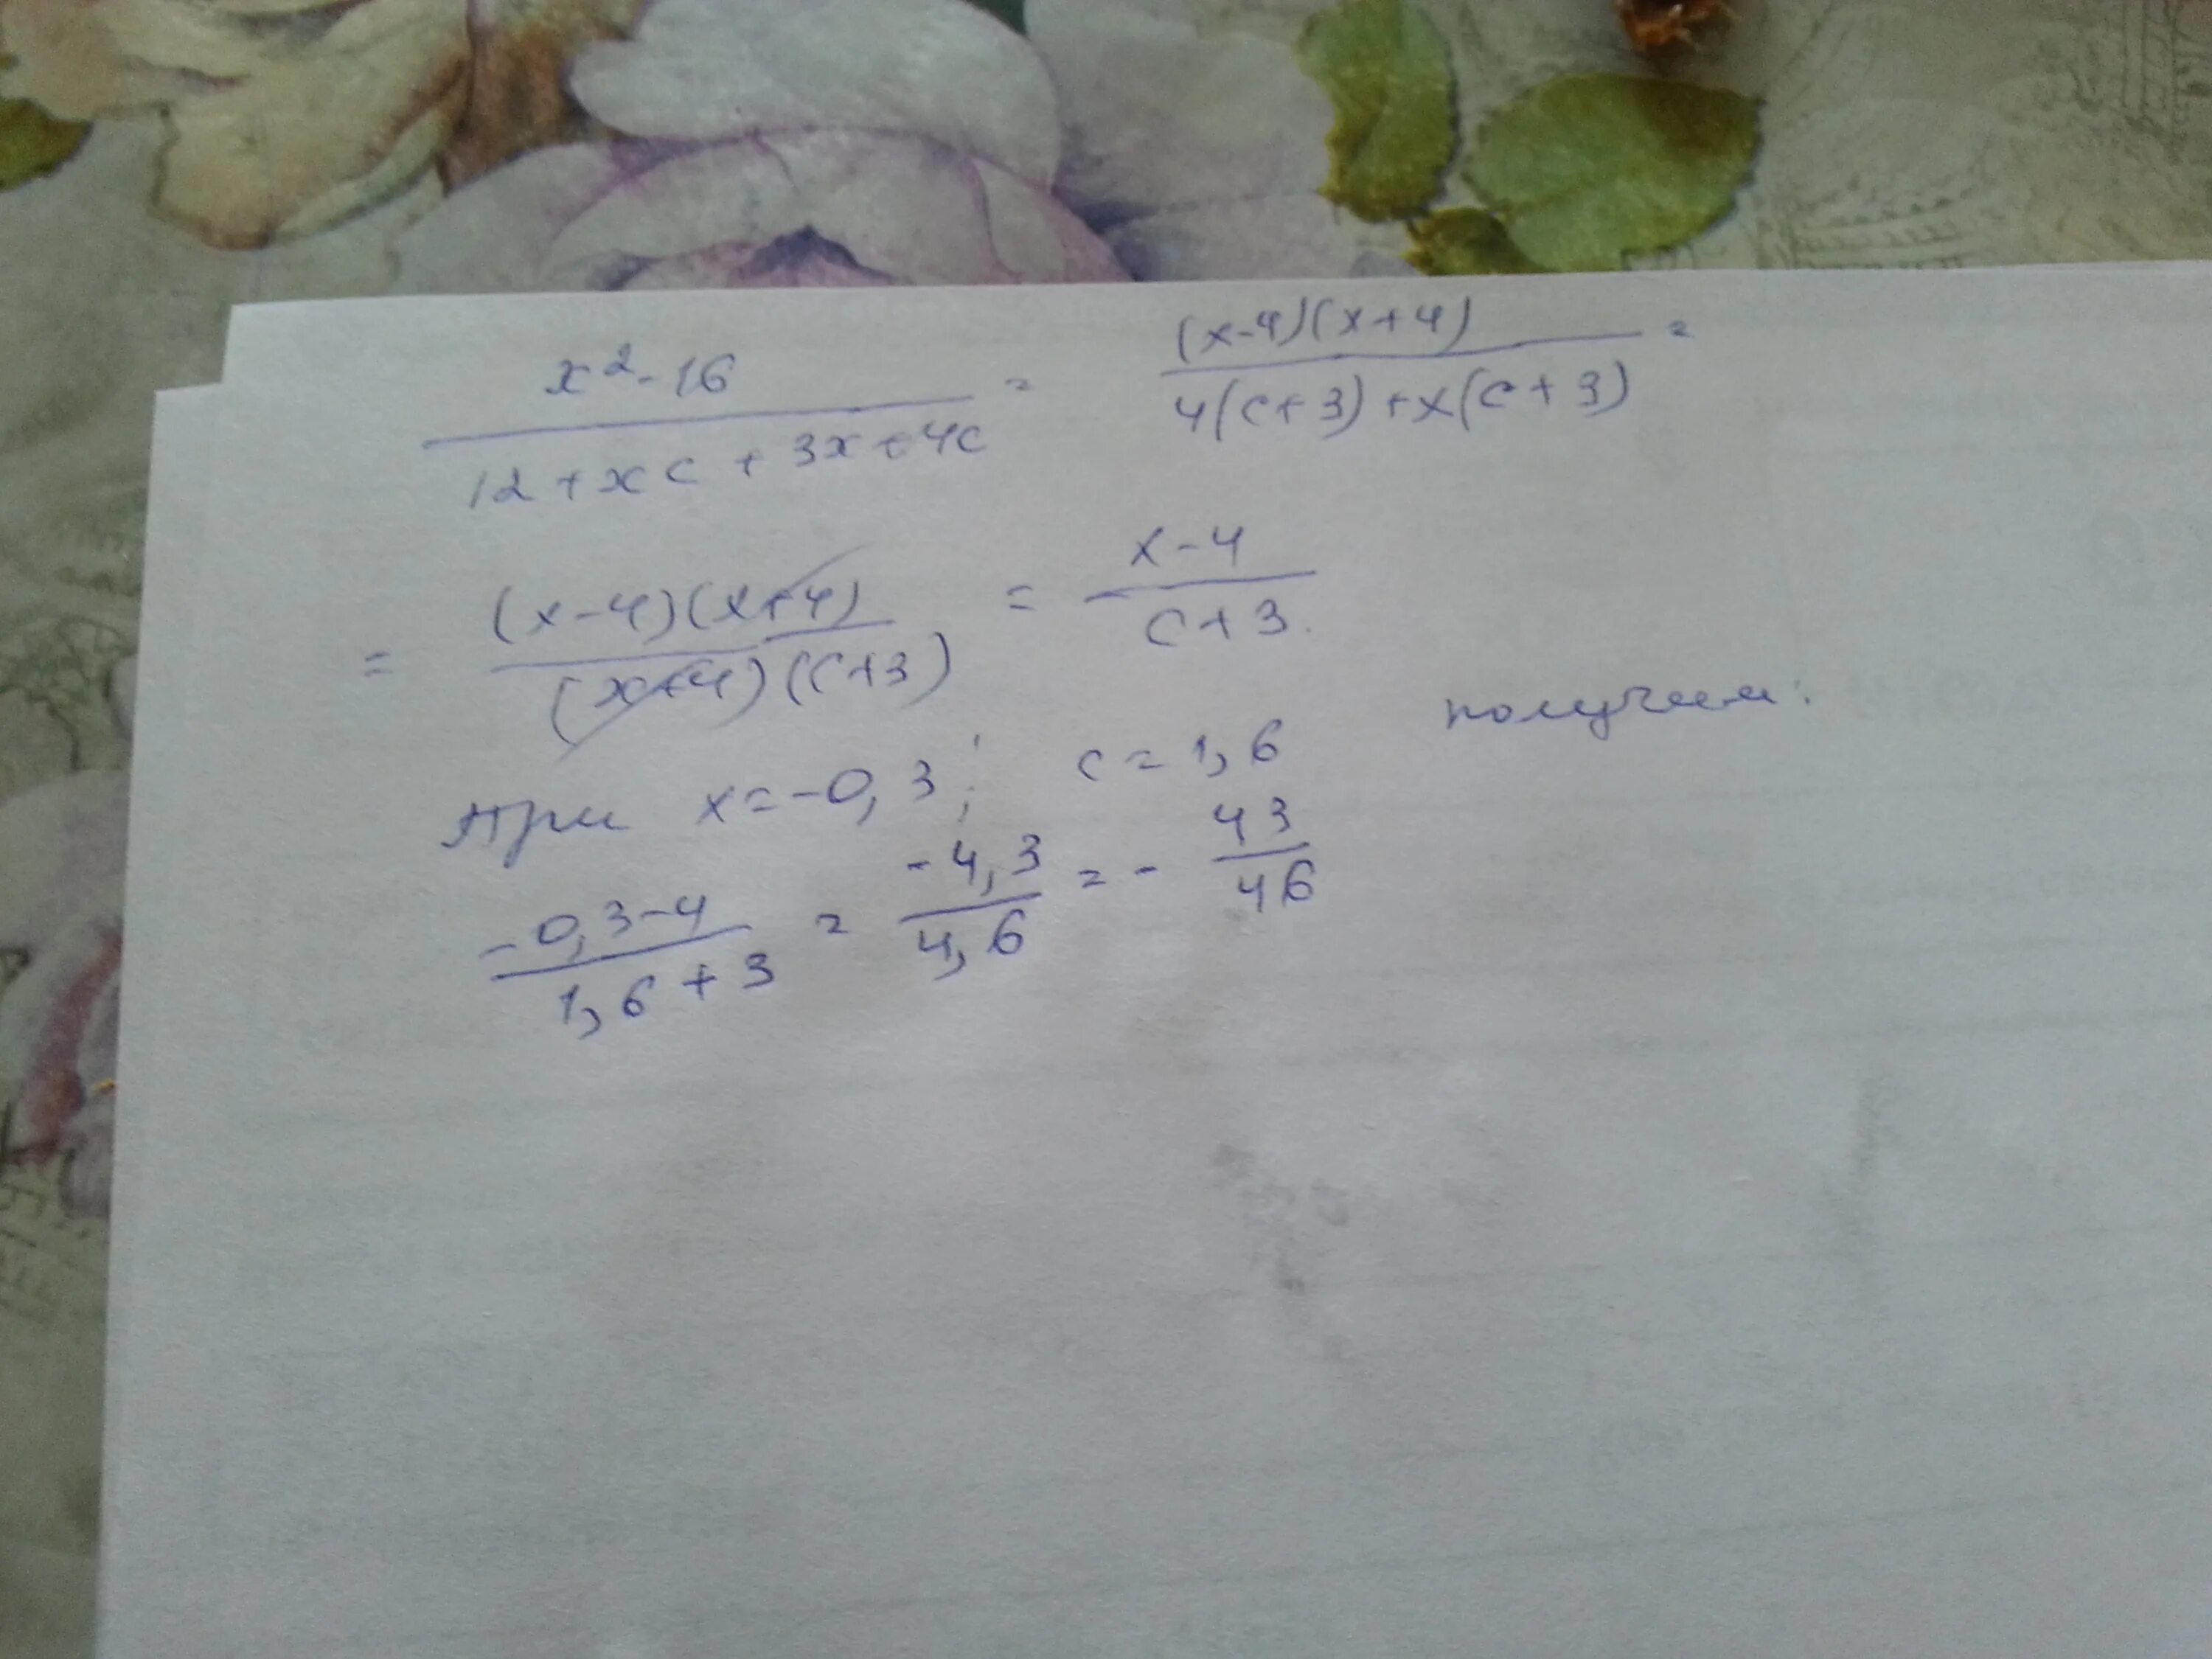 x² - 16 / 12 + xc + 3x + 4c = (x-4)(x+4) / 4(c+3) + x(c+3) =
= (x-4)(x+4) / (x+4)(c+3) = x-4 / c+3.
При x = -0,3; c = 1,6 получим:
-0,3-4 / 1,6+3 = -4,3 / 4,6 = - 43 / 46